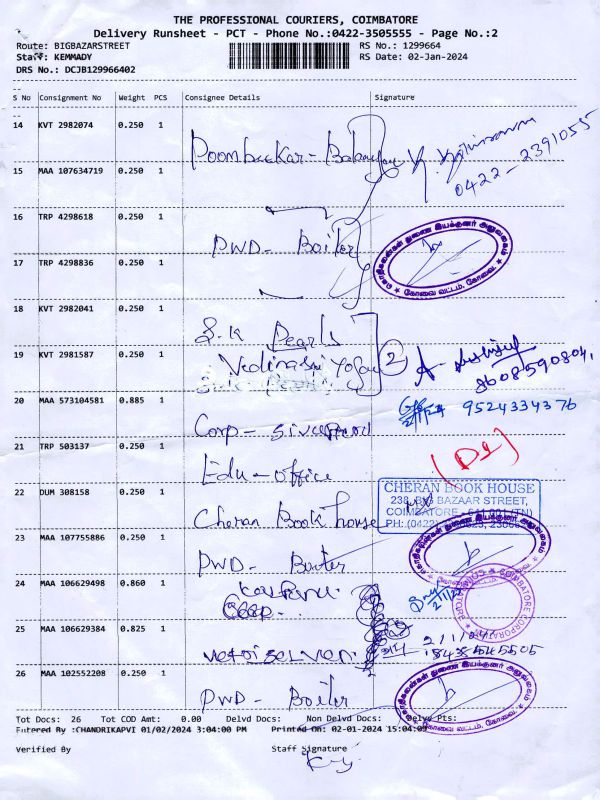 THE PROFESSIONAL COURIERS, COIMBATORE
Delivery Runsheet - PCT - Phone No.:0422-3505555 - Page No.:2
Route: BIGBAZARSTREET
Staff: KEMMADY
DRS No.: DCJB129966402
RS No.: 1299664
RS Date: 02-Jan-2024
S No Consignment No Weight PCS Consignee Details Signature
14 KVT 2982074 0.250 1
Poombukar - 0422-2391055
15 MAA 107634719 0.250 1
16 TRP 4298618 0.250 1
PWD - Boiler
17 TRP 4298836 0.250 1
18 KVT 2982041 0.250 1
S.K Pearls
19 KVT 2981587 0.250 1
2
8608590804
20 MAA 573104581 0.885 1
2/1/24 9524334376
Corp -
21 TRP 503137 0.250 1
Edu - office
22 DUM 308158 0.250 1
CHERAN BOOK HOUSE
238, BIG BAZAAR STREET,
COIMBATORE - 641 001 (TN)
Cheran Book house
PH: (0422)
23 MAA 107755886 0.250 1
PWD - Boiler
24 MAA 106629498 0.860 1
25 MAA 106629384 0.825 1
26 MAA 102552208 0.250 1
PWD - Boiler
கோவை வட்டம், கோவை.
Tot Docs: 26 Tot COD Amt: 0.00 Delvd Docs: Non Delvd Docs: Delvy Pts:
Entered By :CHANDRIKAPVI 01/02/2024 3:04:00 PM Printed On: 02-01-2024 15:04:09
Verified By Staff Signature